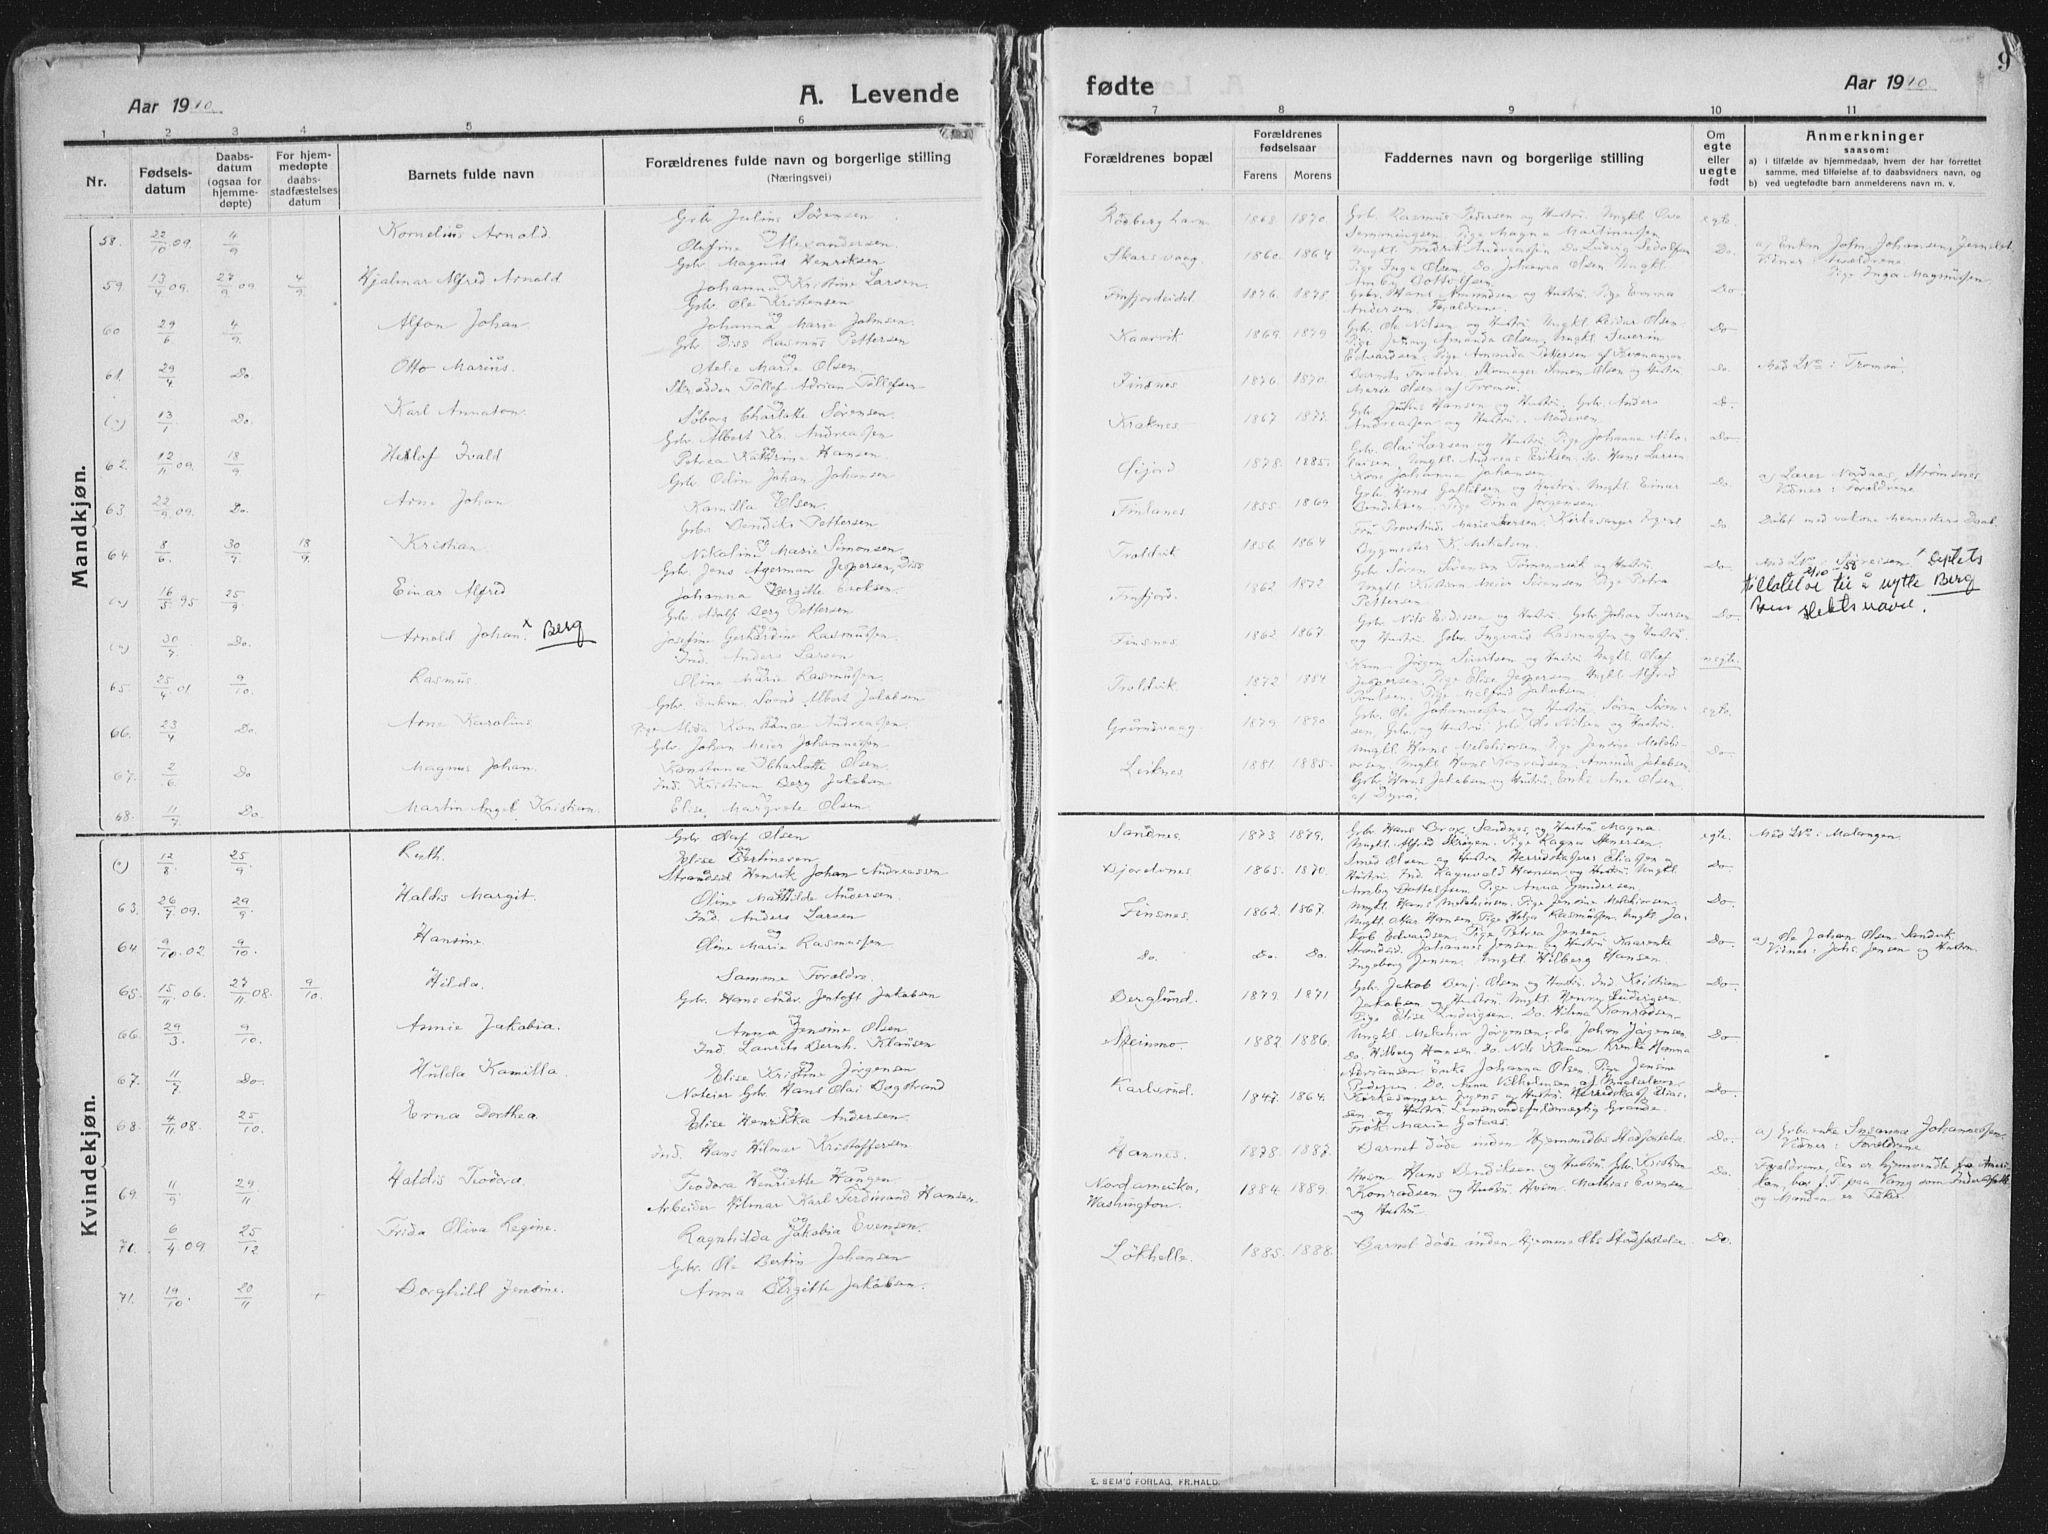 Aar 1910
A. Levende
1 2 3 4 5 6
Nr.
Fødsels-
datum
Daabs-
datum
(ogsaa for
hjemme-
døpte)
For hjem-
medøpte
daabs-
stadfæstelses
datum
Barnets fulde navn
Forældrenes fulde navn og borgerlige stilling
(Næringsvei)
Mandkjøn.
58. 22/10 09. 4/9 Kornelius Arnold. Grb. Julius Sørensen
og
Olufine Alexandersen.
59. 13/4 09. 27/9 09 4/9 Hjalmar Alfred Arnold Grb. Magnus Henriksen
Johanna Kristine Larsen.
60 29/6 4/9. Alfon Johan. Grb. Ole Kristensen
og
Johanna Marie Johnsen.
61. 29/4 Do. Otto Marius. Grb. Diss Rasmus Pettersen
og
Marie Olsen.
13/1 Do. Karl Annaton. Skrædder Tollef Adrian Tollefsen
og
Charlotte Sørensen.
62. 12/11 09. 18/9 Ivald Grb. Albert Kr. Andreassen
Petrea Katrine Hansen
63. 22/9 09. Do. Arne Johan Grb. Odin Johan Johansen
Kamilla Olsen.
64 8/6. 30/7 18/9. Kristian. Grb. Bendiks Pettersen
og
Nikoline Marie Simonsen.
16/5 95 25/9. Einar Alfred Grb. Jens Agerman Jespersen, Diss
Johanna Bergitte Eriksen.
30/7. Do. Arnold Johan. x Berg Grb. Adolf Berg Pettersen
og
Josefine Gerhardine Rasmussen.
65. 25/4 01. 9/10. Rasmus. Ind. Anders Larsen
og
Oline Marie Rasmussen.
66. 23/4 Do. Arne Karolius. Grb. Enkm. Sivert Albert Jakobsen
Pige Alida Konstance Andreassen.
67. 2/6 Do Magnus Johan. Grb. Johan Meier Johannessen
Konstance Charlotte Olsen.
68. 11/7. Do. Martin Angel Kristian. Ind. Kristian Berg Jakobsen
og
Elise Margrete Olsen.
Kvindekjøn.
12/8. 25/9. Ruth. Grb. Olaf Olsen
og
Elise Bertinesen
63. 26/7 09. 29/9. Haldis Margit. Strandsid Henrik Johan Andreassen
Oline Mathilde Andersen.
64 9/10 02 9/10. Hansine. Ind. Anders Larsen
og
Oline Marie Rasmussen
65. 15/11 06. 27/11 08. 9/10. Hilda. Samme Forældre.
66. 29/3. 9/10. Annie Jakobia. Grb. Hans Andr. Jentoft Jakobsen
og
Anna Jensine Olsen
67. 11/7 Do. Hulda Kamilla. Ind. Laurits Bernh. Klausen
og
Elise Kristine Jørgensen
68. 4/11 08. 25/10. Erna Dorthea. Noteier Grb. Hans Olai Bogstrand
og
Elise Henrikka Andersen.
69. 11/9 29/11 Haldis Teodora. Ind. Hans Hilmar Kristoffersen
og
Teodora Henriette Haugen
71. 6/4 09. 25/12 Frida Oliva Regine. Arbeider Hilmar Karl Ferdinand Hansen.
og
Ragnhilda Jakobia Evensen.
71. 19/10. 20/11 + Borghild Jensine. Grb. Ole Bertin Johansen
og
Anna Birgitte Jakobsen.
9
fødte
Aar 1910
7 8 9 10 11
Forældrenes bopæl
Forældrenes
fødselsaar
Farens Morens
Faddernes navn og borgerlige stilling
Om
egte
eller
uegte
født
Anmerkninger
saasom:
a) i tilfælde av hjemmedaab, hvem der har forrettet
samme, med tilføielse af to daabsvidners navn, og
b) ved uegtefødte barn anmelderens navn m. v.
1868. 1870. Grb. Rasmus Pedersen og Hustru. Ungkl. egte.
Pige Magna Martinussen
Skarsvaag. 1860. 1864 Ungkl. Fredrik Andreassen Do. Do. a) Enkm. John Johansen,
Pige Inga Olsen, Do. Johanna Olsen Ungkl. Vidner: Forældrene
Pige Inga Magnussen
Finfjordeidet 1876. 1878. Grb. Hans Amundsen og Hustru. Pige Emma Do.
Andersen. Forældrene.
Kaarvik 1869. 1879 Grb. Ole Nilsen og Hustru. Ungkl. Reidar Olsen. Do
Pige Jenny Amanda Olsen, Ungkl. Severin
Edvardsen, Pige Amanda Pettersen af Kvænangen
Finsnes 1876. 1870. Barnets Forældre. Skomager Simon Olsen og Hustru Do. Med No: Tromsø.
Marie Olsen af Tromsø.
Kraknes 1867 Grb. Julius Hansen og Hustru, Grb. Anders Do.
Andreassen og Hustru. Moderen.
Øijord 1878. 1885. Grb. Olai Larsen og Hustru, Pige Johanna Niko- Do.
laisen, Ungkl. Andreas Eriksen. Do. Hans Larsen
Kone Johanna Johansen
Finlanes 1855. 1869 Grb. Hans og Hustru. Ungkl. Einar Do. a) Lærer Nordaas, Strømsnes.
Bendiksen. Pige Erna Jørgensen. Vidner: Forældrene
Troldvik 1856. 1864 Kirkesanger Do Døbt med voksne Menneskers Daab.
Bygmester K. Mikalsen.
Finfjord. 1862 1872 Grb. Søren Sørensen Tømmervik og Hustru Do. Med No Sørreisen!
Ungkl. Kristian Meier Sørensen Pige Petra
Pettersen.
x 21/10 -58 Deplets
tillatelse til å nytte Berg
som slektsnavn.
Finsnes. 1862. 1867. Grb. Nils Eidissen og Hustru Grb. Johan Iversen Do.
og Hustru. Grb. Ingvald Rasmussen og Hustru
Troldvik. 1872. 1884 Krm. Jørgen Sivertsen og Hustru Ungkl. Olaf uegte.
Jespersen. Pige Elise Jespersen Ungkl. Alfred
Poulsen. Pige Jakobsen.
Grøndvaag. 1879. 1890 Grb. Ole Johannessen og Hustru, Søren Søren- egte.
sen, Grb. og Hustru. Grb. Ole Nilsen og Hustru.
Leiknes 1881. 1885. Ungkl. Hans Melchiorsen. Pige Jensine Melchi- Do.
orsen. Ungkl. Hans Konradsen. Aminda Jakobsen.
Grb. Hans Jakobsen og Hustru. Enke Ane Olsen.
af Dyrø.
Sandnes. 1873. 1879. Grb. Hans Brox, Sandnes og Hustru Magna. egte. Med No: Malangen.
Ungkl. Alfred Skrøgen. Pige Ragna Stenersen.
Bjorelvnes 1865. 1870. Smed Olsen og Hustru Herredskasserer Eliassen og Do.
Hustru. Ind. Ragnvald Hansen og Hustru Ungkl.
Pige Anna Gundersen.
Finsnes. 1862. 1867. Ungkl. Hans Melchiorsen. Pige Jensine Melchiorsen. Do.
Ungkl. Hansen, Pige Helga Rasmussen. Ungkl. Ja-
kob Edvardsen. Pige Petrea Jensen.
Do. Do. Do. Strandsid. Johannes Jensen og Hustru Kaarenke Do. a) Ole Johan Olsen Sandvik
Ingeborg Jensen. Ungkl. Hilberg Hansen. Vidner: Johs. Jensen og Hustru.
Berglund. 1879. 1871. Grb. Jakob Benj. Olsen og Hustru. Ind. Kristian Do.
Jakobsen og Hustru. Ungkl. Henry Ludvigsen.
Pige Elise Ludvigsen. Do. Hilma Konradsen.
Steinmo. 1882. 1886. Ungkl. Melchior Jørgensen, do Johan Jørgensen Do.
Do. Hilberg Hansen. Do. Nils Klausen Hanna
Adriansen Enke Johanna Olsen. Pige Jensine
Pedersen. Do. Anna Vilhelmsen af
Karlsrud. 1847. 1864. Kirkesanger og Hustru. Herredskas. Elias- Do.
sen og Hustru Lensmandsfuldmægtig Grande.
Frøk. Marie Gotaas.
Hannes. 1878. 1887. Barnet døde inden Hjemmedbs Stadfæstelse. Do. a) Grb. enke Susanna Johannessen.
Vidner: Forældrene
Nordamerika, 1884. 1889. Husm. Hans Bendiksen og Hustru, Grb. Kristian Do. Forældrene, der er hjemvendte fra Ameri-
Washington. Konradsen og Hustru, Husm. Mathias Evensen
og Hustru. og Manden er Fisker.
Løkhelle. 1885. 1888. Barnet døde inden Hjemmedbs Stadfæstelse. Do.
E. SEM'S FORLAG, FR.HALD.